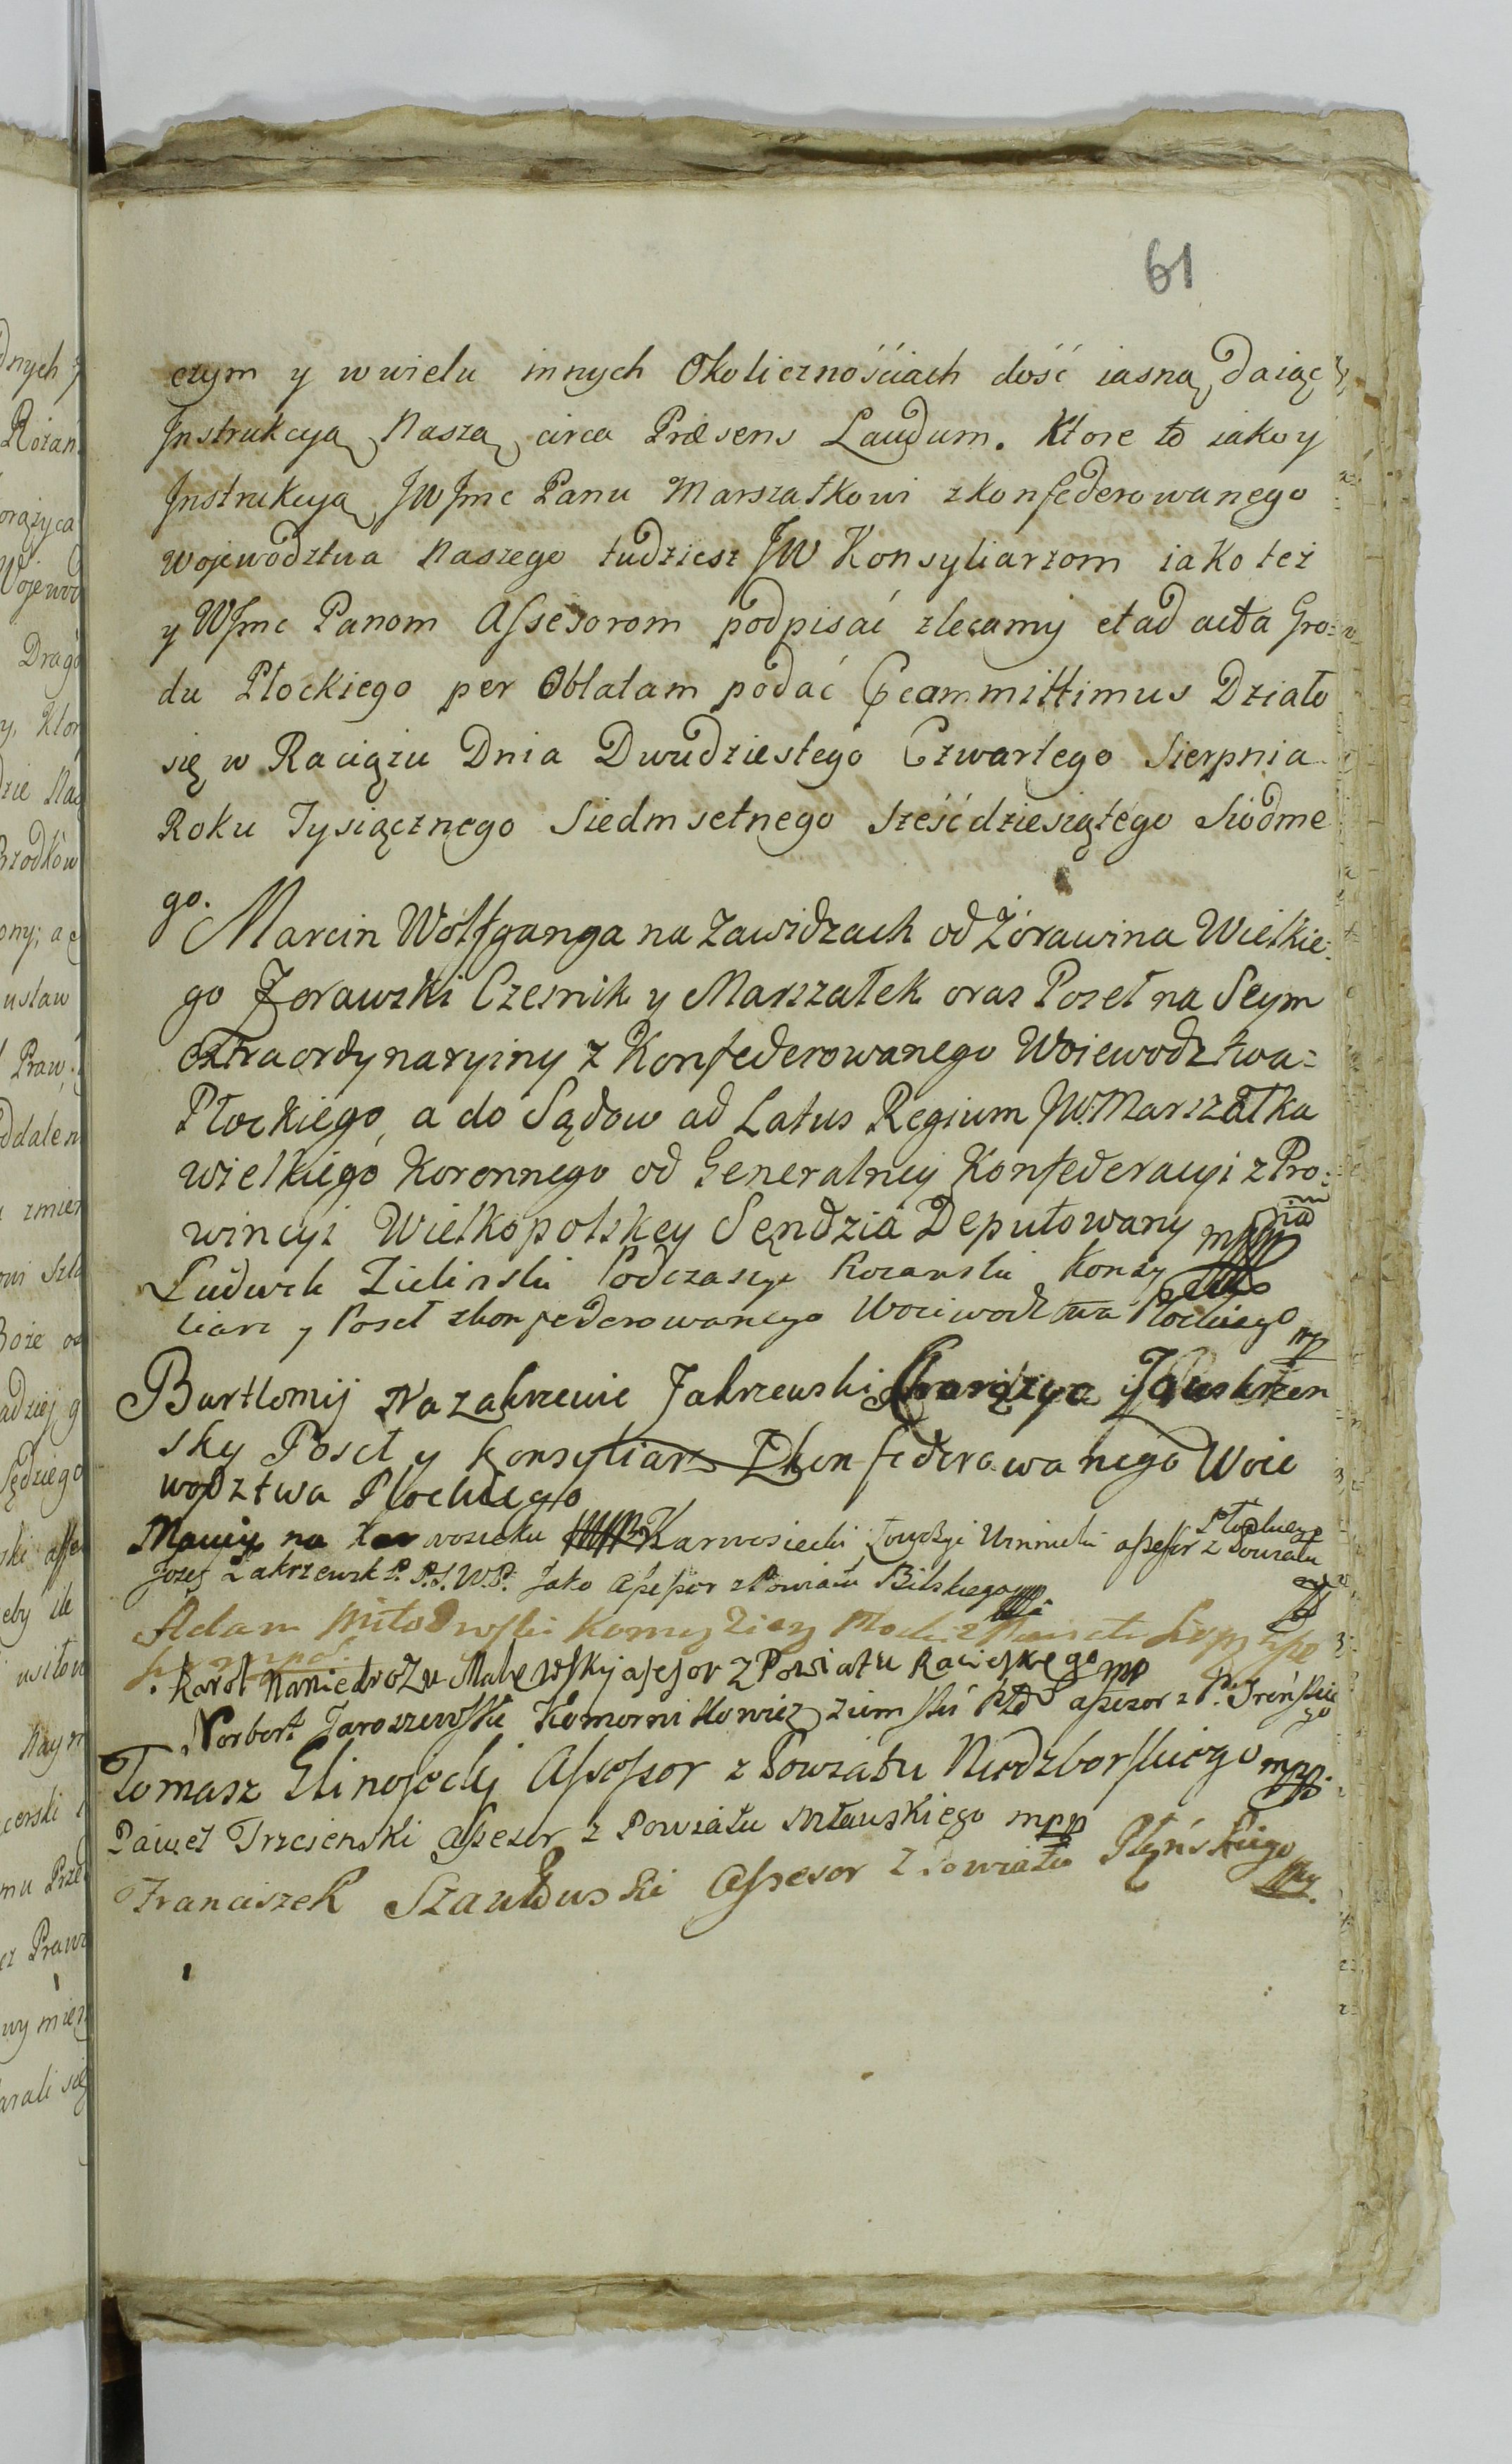 61
czym y w wielu innych Okolicznościach dość iasną daiąc
Jnstrukcyą Naszą circa Præsens Laudum. Ktore to iako y
Jnstrukcyą JWJmc Panu Marszałkowi zkonfederowanego
Wojewodztwa Naszego tudziesz JW Konsyliarzom iako też
y WJmc Panom Assesorom podpisać zlecamy et ad acta Gro=
du Płockiego per Oblatam podać committimus Działo
się w Raciążu Dnia Dwudziestego Czwartego Sierpnia
Roku Tysiącznego Siedmsetnego Sześćdziesiątego Siodme
go.
Marcin Wolfganga na Zawidzach od Żorawina Wielkie=
go Żorawski Czesnik y Marszałek oraz Poseł na Seym
extraordynaryiny z Konfederowanego Woiewodztwa=
Płockiego, a do Sądow ad Latus Regium JW. Marszałka
wielkiego Koronnego od Generalney Konfederacyi z Pro=
wincyi Wielkopolskey Sendzia Deputowany mpp
Ludwik Zielinski Podczaszyc Rozanski Konsy
liarz y Poseł zkonfederowanego Woiewodztwa Płockiego mp
Bartlomij Na Zakrzewie Zakrzewski Chorązyc
sky Poseł y Konsyliarz Zkonfederowanego Woie
wodztwa Plockiego
na Karwosieku Karwosiecki assesor z Powiatu Płockiego
Jozef Zakrzewsk P. P. S. W. P. Jako assessor z Powiatu Bilskiego mpp
Adam
Karol Na Niedrożu Malewsky asesor z Powiatu Raciąskego mp
Norbert Jaroszewski Komornikowicz ziemski assesor z P. Sreńskie
go
Tomasz Glinojecki Assessor z Powiatu Niedzborskiego mpp.
Paweł Trzcienski assesor z Powiatu Mławskiego mpp
Franciszek Assesor z Powiatu Płońskiego mpp.